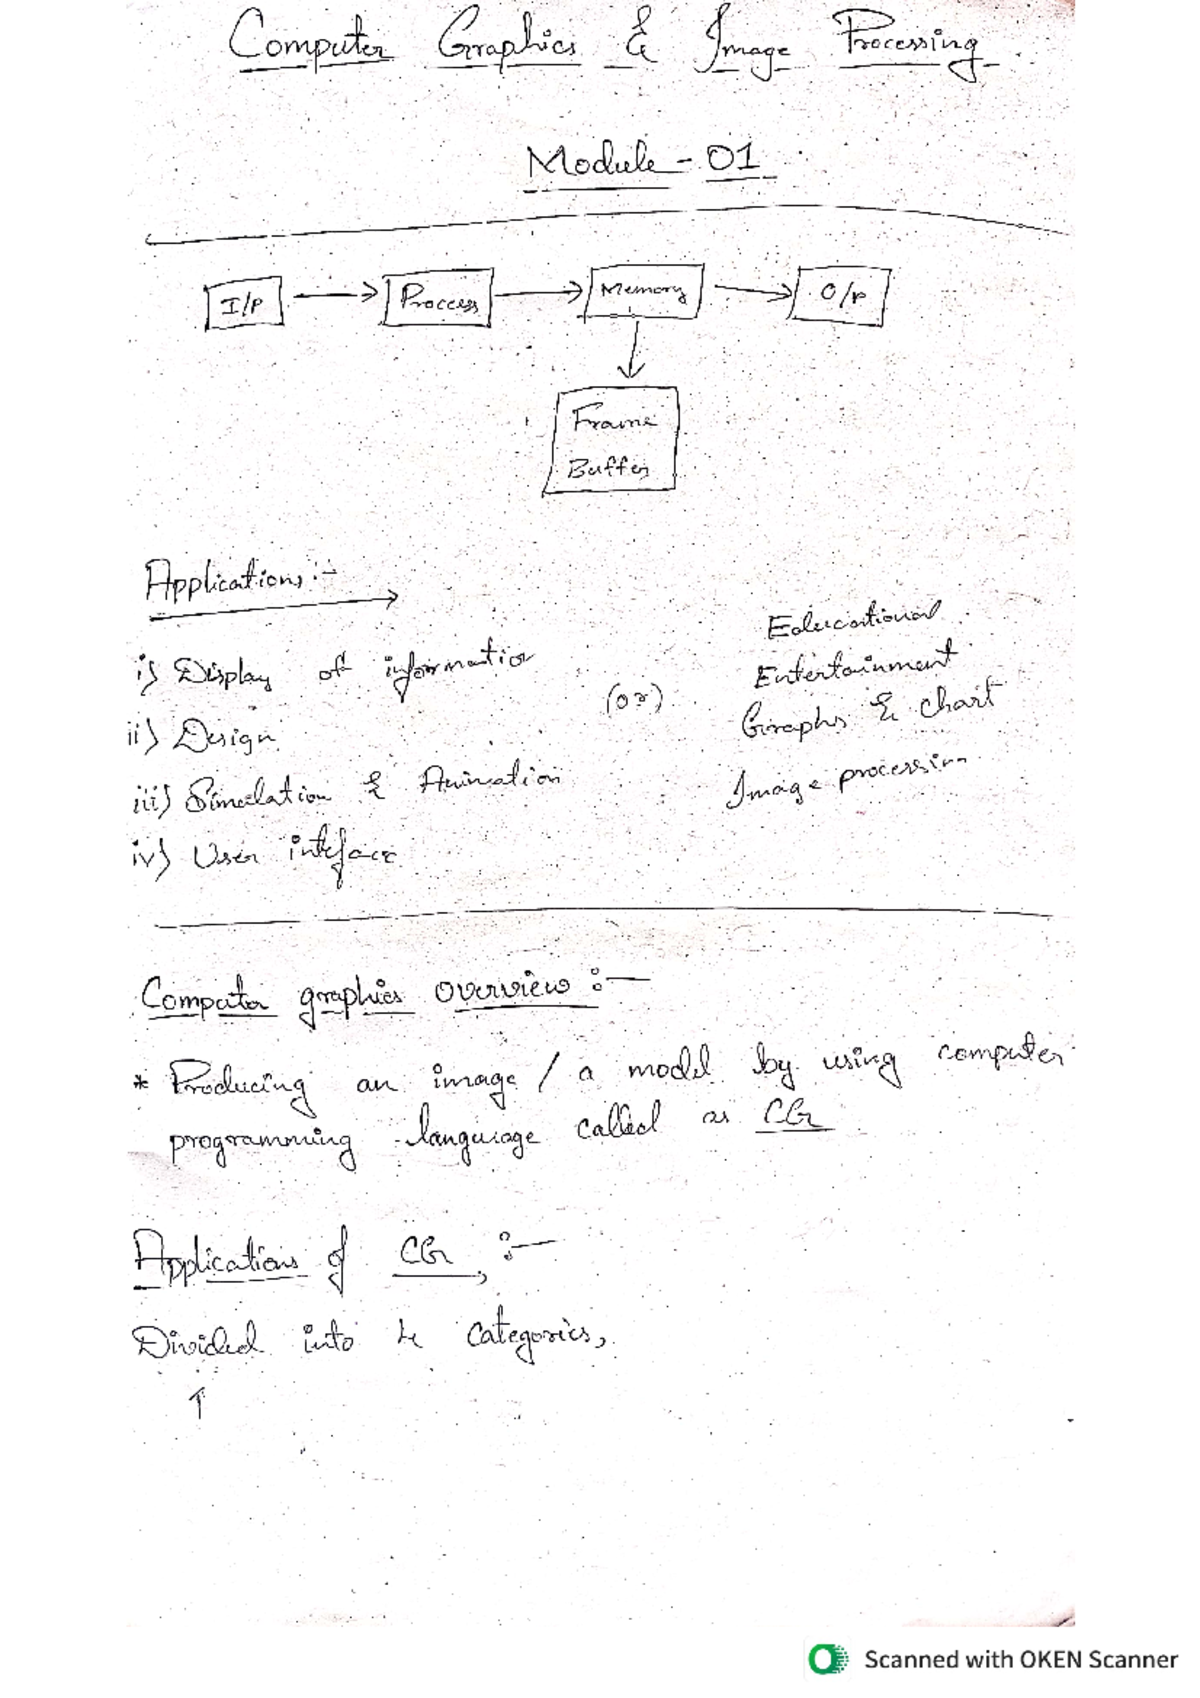 Computer Graphics & Image Processing
Module - 01
I/P
Proccess
Memory
O/P
Frame
Buffer
Applications :-
i) Display of information
ii) Design
iii) Simulation & Animation
iv) User inteface
(or)
Educational
Entertainment
Graphs & chart
Image processing
Computer graphics overview :-
* Producing an image / a model by using computer
programming language called as CG
Applications of CG, :-
Divided into 4 categories,
Scanned with OKEN Scanner